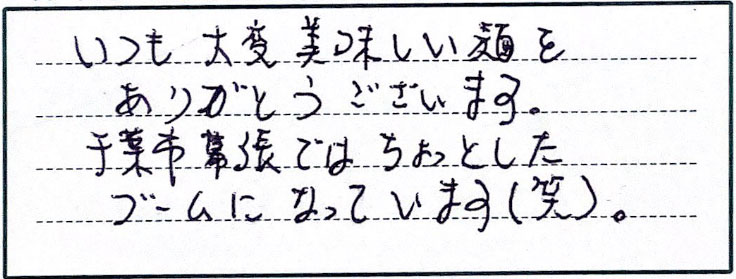 いつも大変美味しい麺を
ありがとうございます。
千葉市幕張ではちょっとした
ブームになっています(笑)。